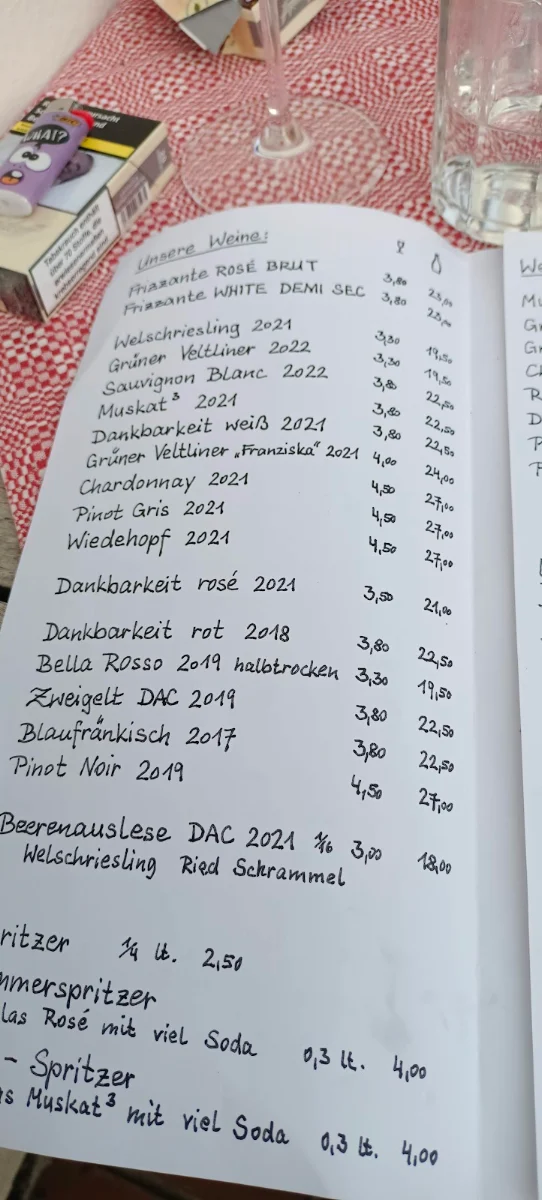 WHAT?
Tabakrauch enthält
über 70 Stoffe, die
erwiesenermaßen
krebserregend sind
Unsere Weine:
Frizzante ROSÉ BRUT 3,80 23,00
Frizzante WHITE DEMI SEC 3,80 23,00
Welschriesling 2021 3,30 19,50
Grüner Veltliner 2022 3,30 19,50
Sauvignon Blanc 2022 3,80 22,50
Muskat³ 2021 3,80 22,50
Dankbarkeit weiß 2021 3,80 22,50
Grüner Veltliner „Franziska" 2021 4,00 24,00
Chardonnay 2021 4,50 27,00
Pinot Gris 2021 4,50 27,00
Wiedehopf 2021 4,50 27,00
Dankbarkeit rosé 2021 3,50 21,00
Dankbarkeit rot 2018 3,80 22,50
Bella Rosso 2019 halbtrocken 3,30 19,50
Zweigelt DAC 2019 3,80 22,50
Blaufränkisch 2017 3,80 22,50
Pinot Noir 2019 4,50 27,00
Beerenauslese DAC 2021 1/16 3,00 18,00
Welschriesling Ried Schrammel
ritzer 1/4 lt. 2,50
mmerspritzer
las Rosé mit viel Soda 0,3 lt. 4,00
- Spritzer
as Muskat³ mit viel Soda 0,3 lt. 4,00